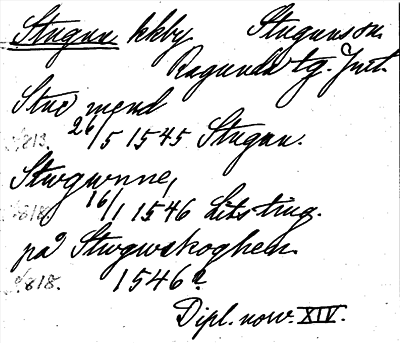 Stugun kkby Stuguns sn.
Ragunda tg. Jmt.
Stuc mend
26/5 1545 Stugun.
Stwgwnne,
16/1 1546 Lits ting.
på Stwgwskoghen
1546
Dipl. norv. XIV.